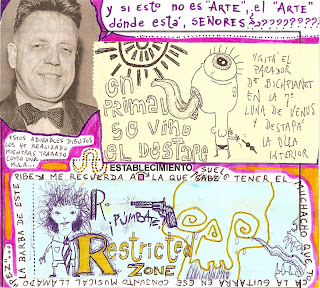 y si esto no es "ARTE", el "ARTE"
dónde está, SEÑORES???????????
ESOS ADORABLES DIBUJOS
LOS HE REALIZADO
MIENTRAS TRABAJO
COMO UNA
MULA...
en
PRIMAL
SE VINO
EL DESTAPE
VISITÁ EL
PARADOR
DE BICHPLANET
EN LA 7ª
LUNA DE VENUS
Y DESTAPÁ
LA OLLA
INTERIOR
ESTABLECIMIENTO
ME RECUERDA A LA QUE SUELE TENER EL
MUCHACHO QUE TOCA
LA GUITARRA EN ESE CONJUNTO MUSICAL LLAMADO
LA BARBA DE ESTE
R
¡PUMBATE!
Restricted
ZONE